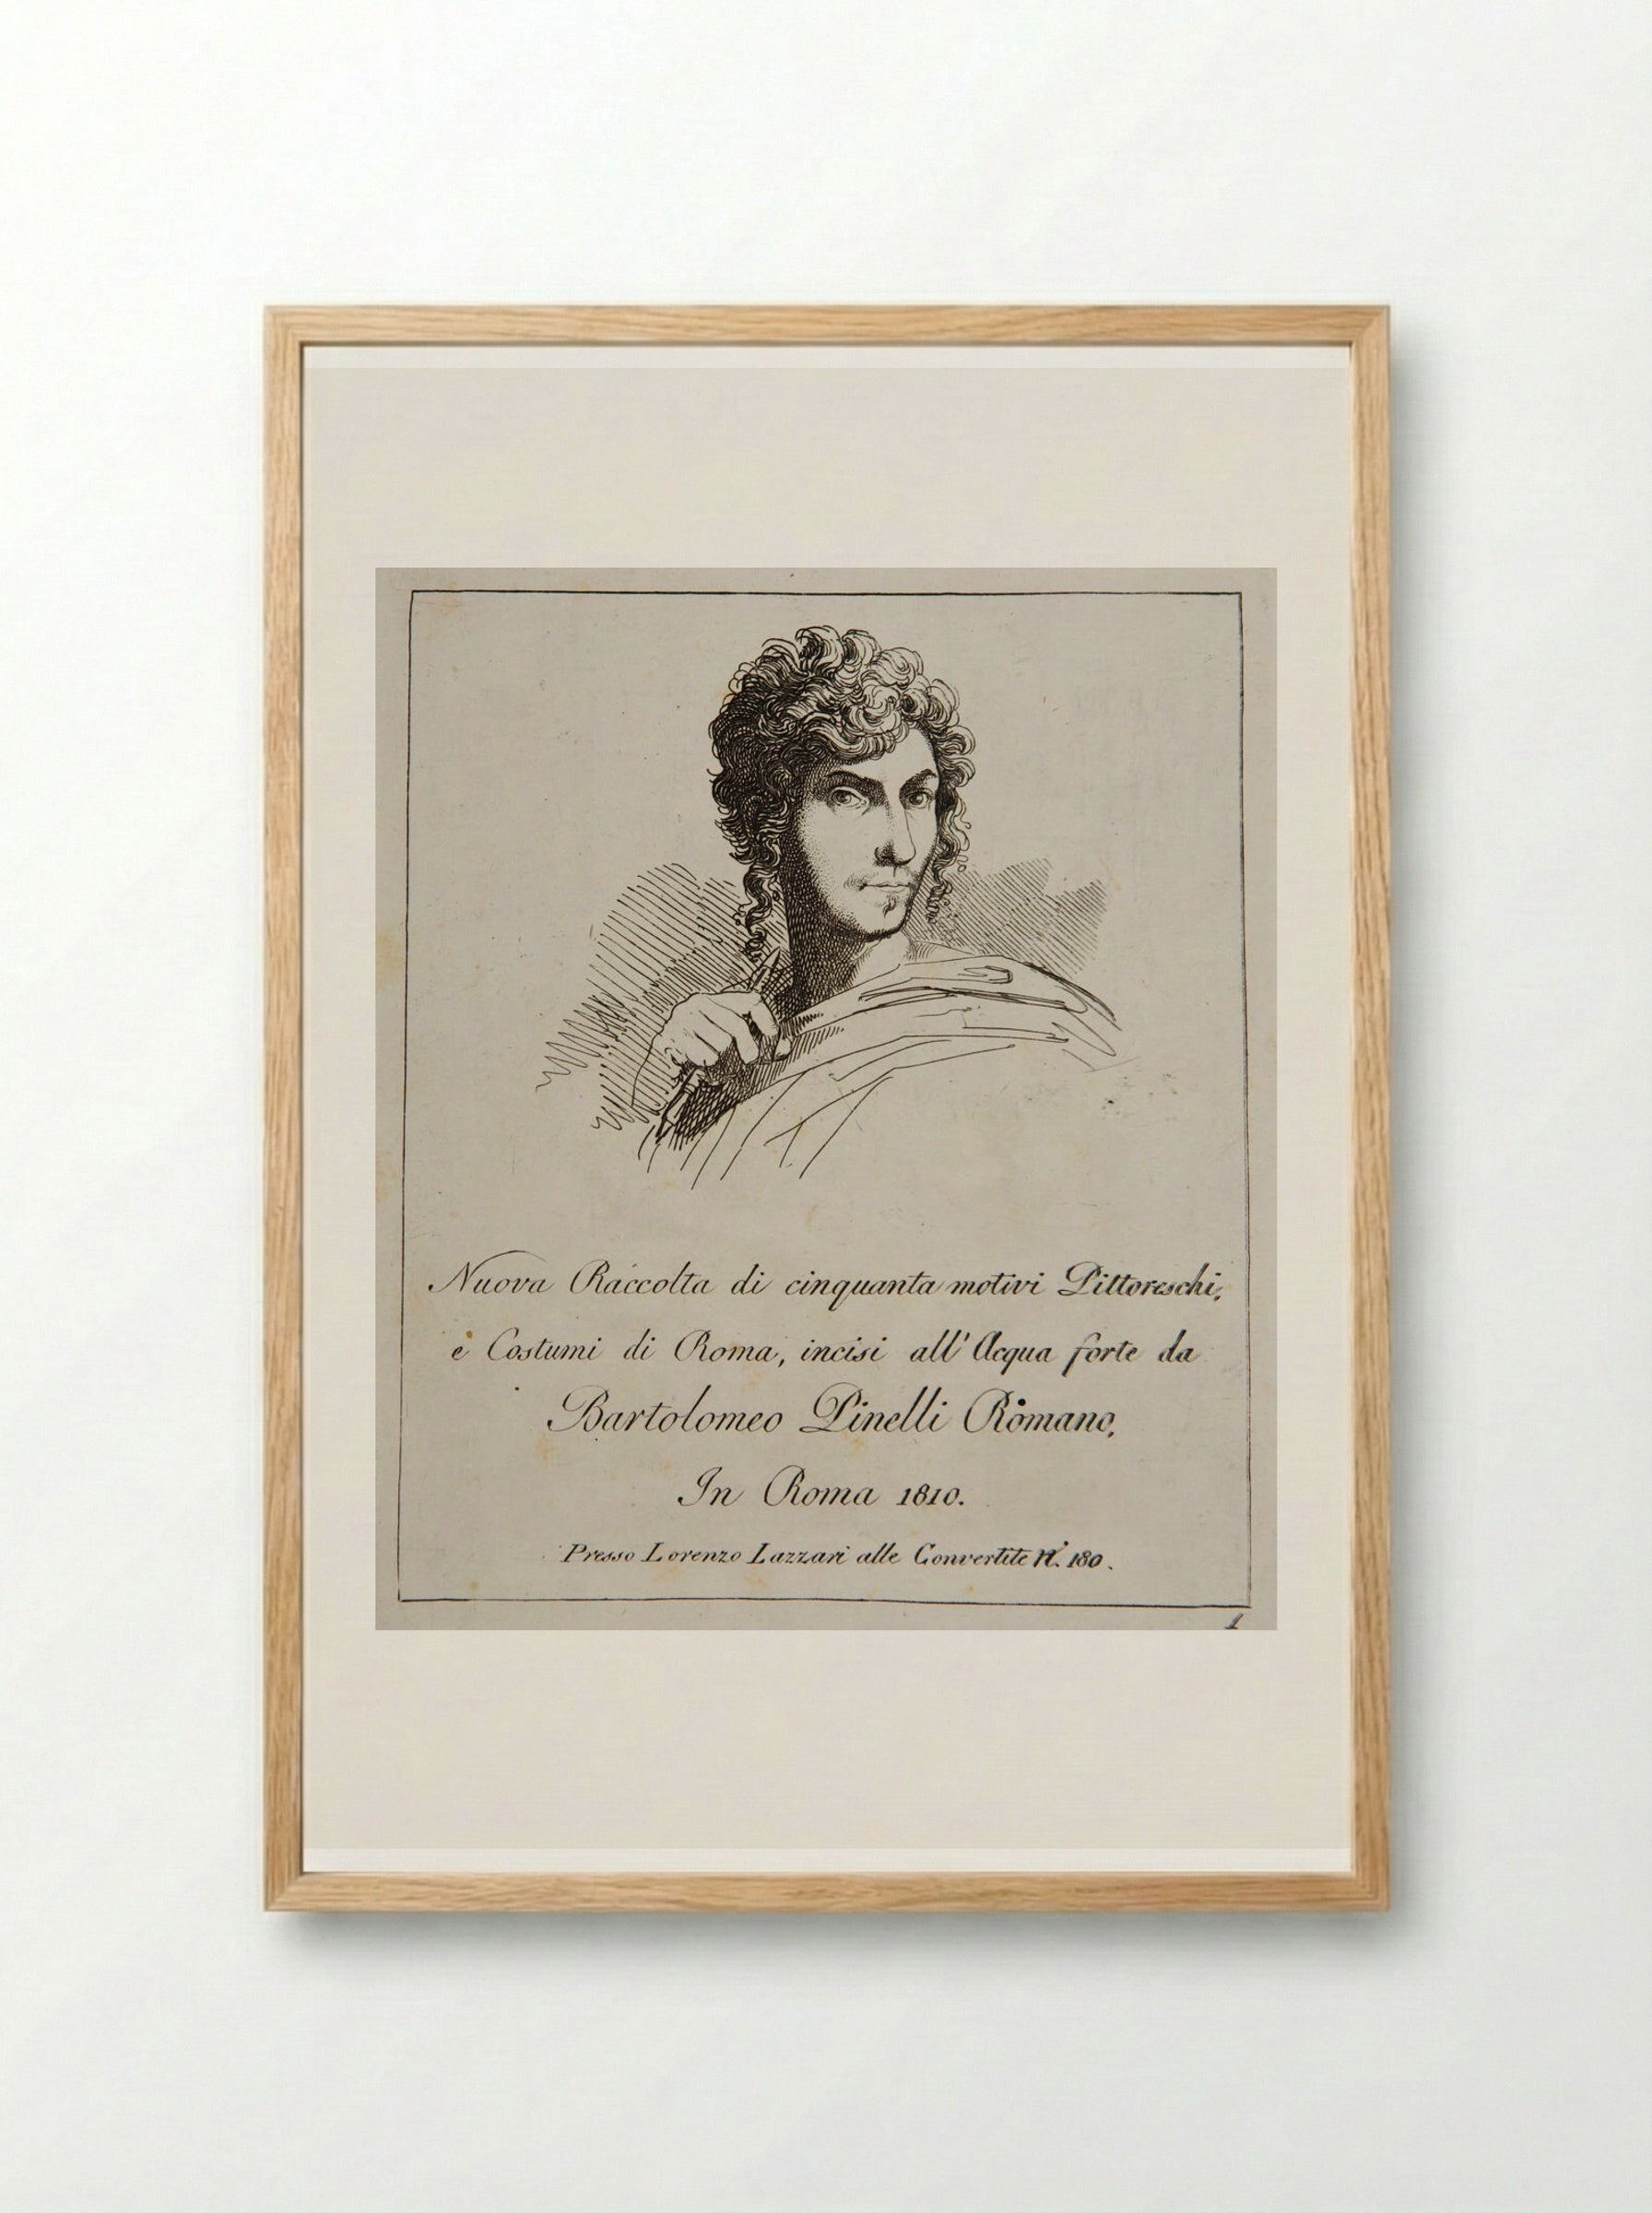 Nuova Raccolta di cinquanta motivi Pittoreschi,
e Costumi di Roma, incisi all' Acqua forte da
Bartolomeo Pinelli Romano,
In Roma 1810.
Presso Lorenzo Lazzari alle Convertite N.° 180.
1